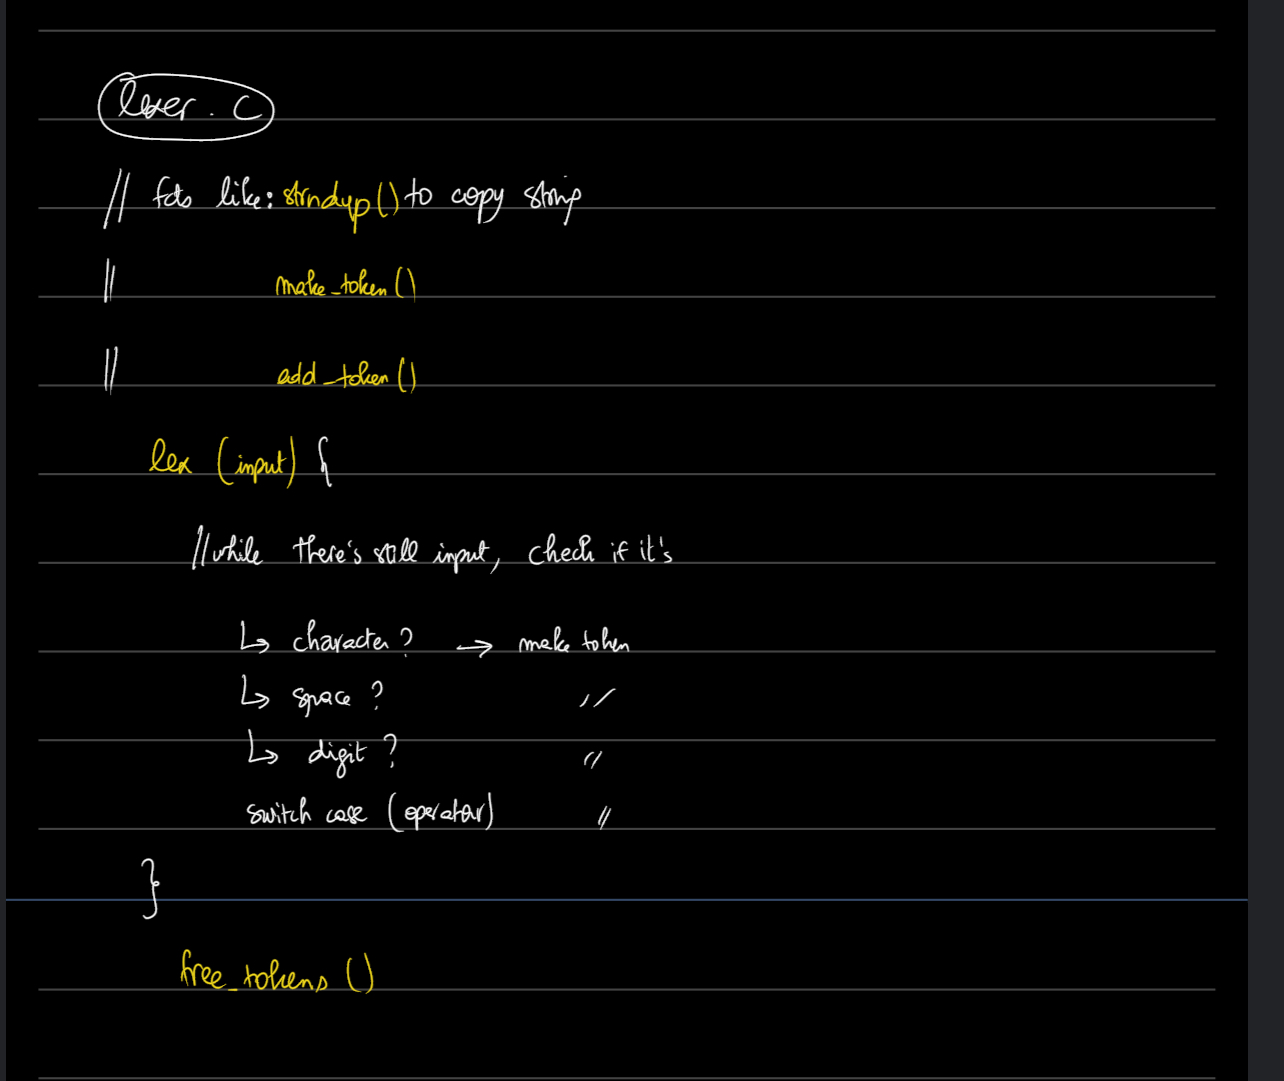 lexer.c
// fcts like: strndup() to copy string
// make_token()
// add_token()
lex (input) {
//while there's still input, check if it's
↳ character? → make token
↳ space? //
↳ digit? //
switch case (operator) //
}
free_tokens ()